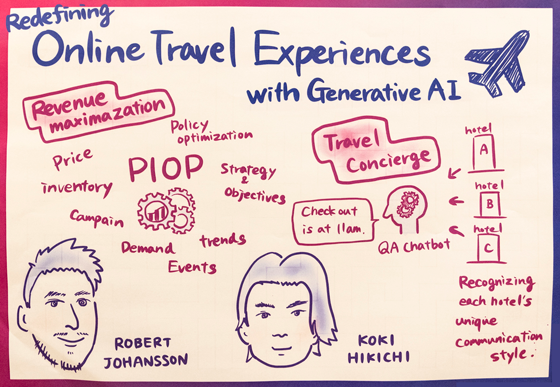 Redefining
Online Travel Experiences
with Generative AI
Revenue
maximazation
Policy
optimization
Price
PIOP
Strategy
&
Objectives
inventory
Campain
Demand
trends
Events
Travel
Concierge
Check out
is at 11am.
QA Chatbot
hotel
A
hotel
B
hotel
C
Recognizing
each hotel's
unique
communication
style.
ROBERT
JOHANSSON
KOKI
HIKICHI